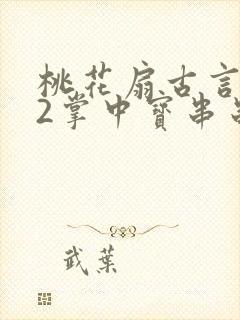 桃花扇古言
2掌中寶串
武葉